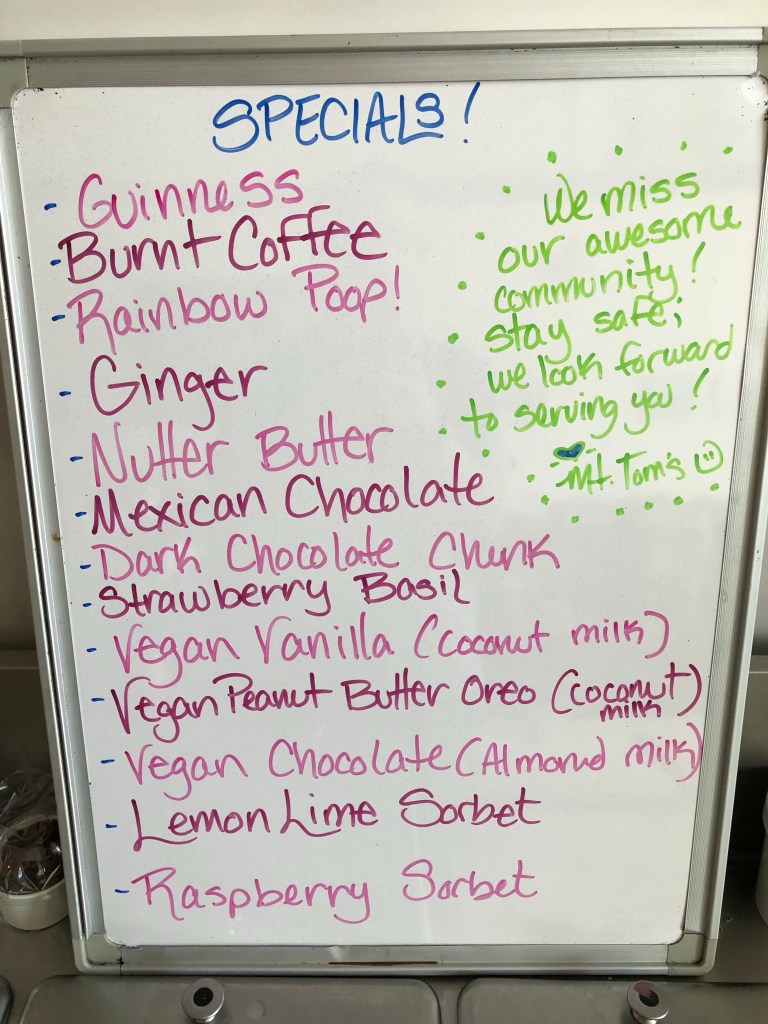 SPECIALS!
- Guinness
- Burnt Coffee
- Rainbow Poop!
- Ginger
- Nutter Butter
- Mexican Chocolate
- Dark Chocolate Chunk
- Strawberry Basil
- Vegan Vanilla (Coconut milk)
- Vegan Peanut Butter Oreo (coconut
milk)
- Vegan Chocolate (Almond milk)
- Lemon Lime Sorbet
- Raspberry Sorbet
We miss
our awesome
community!
stay safe;
we look forward
to serving you!
Mt. Tom's